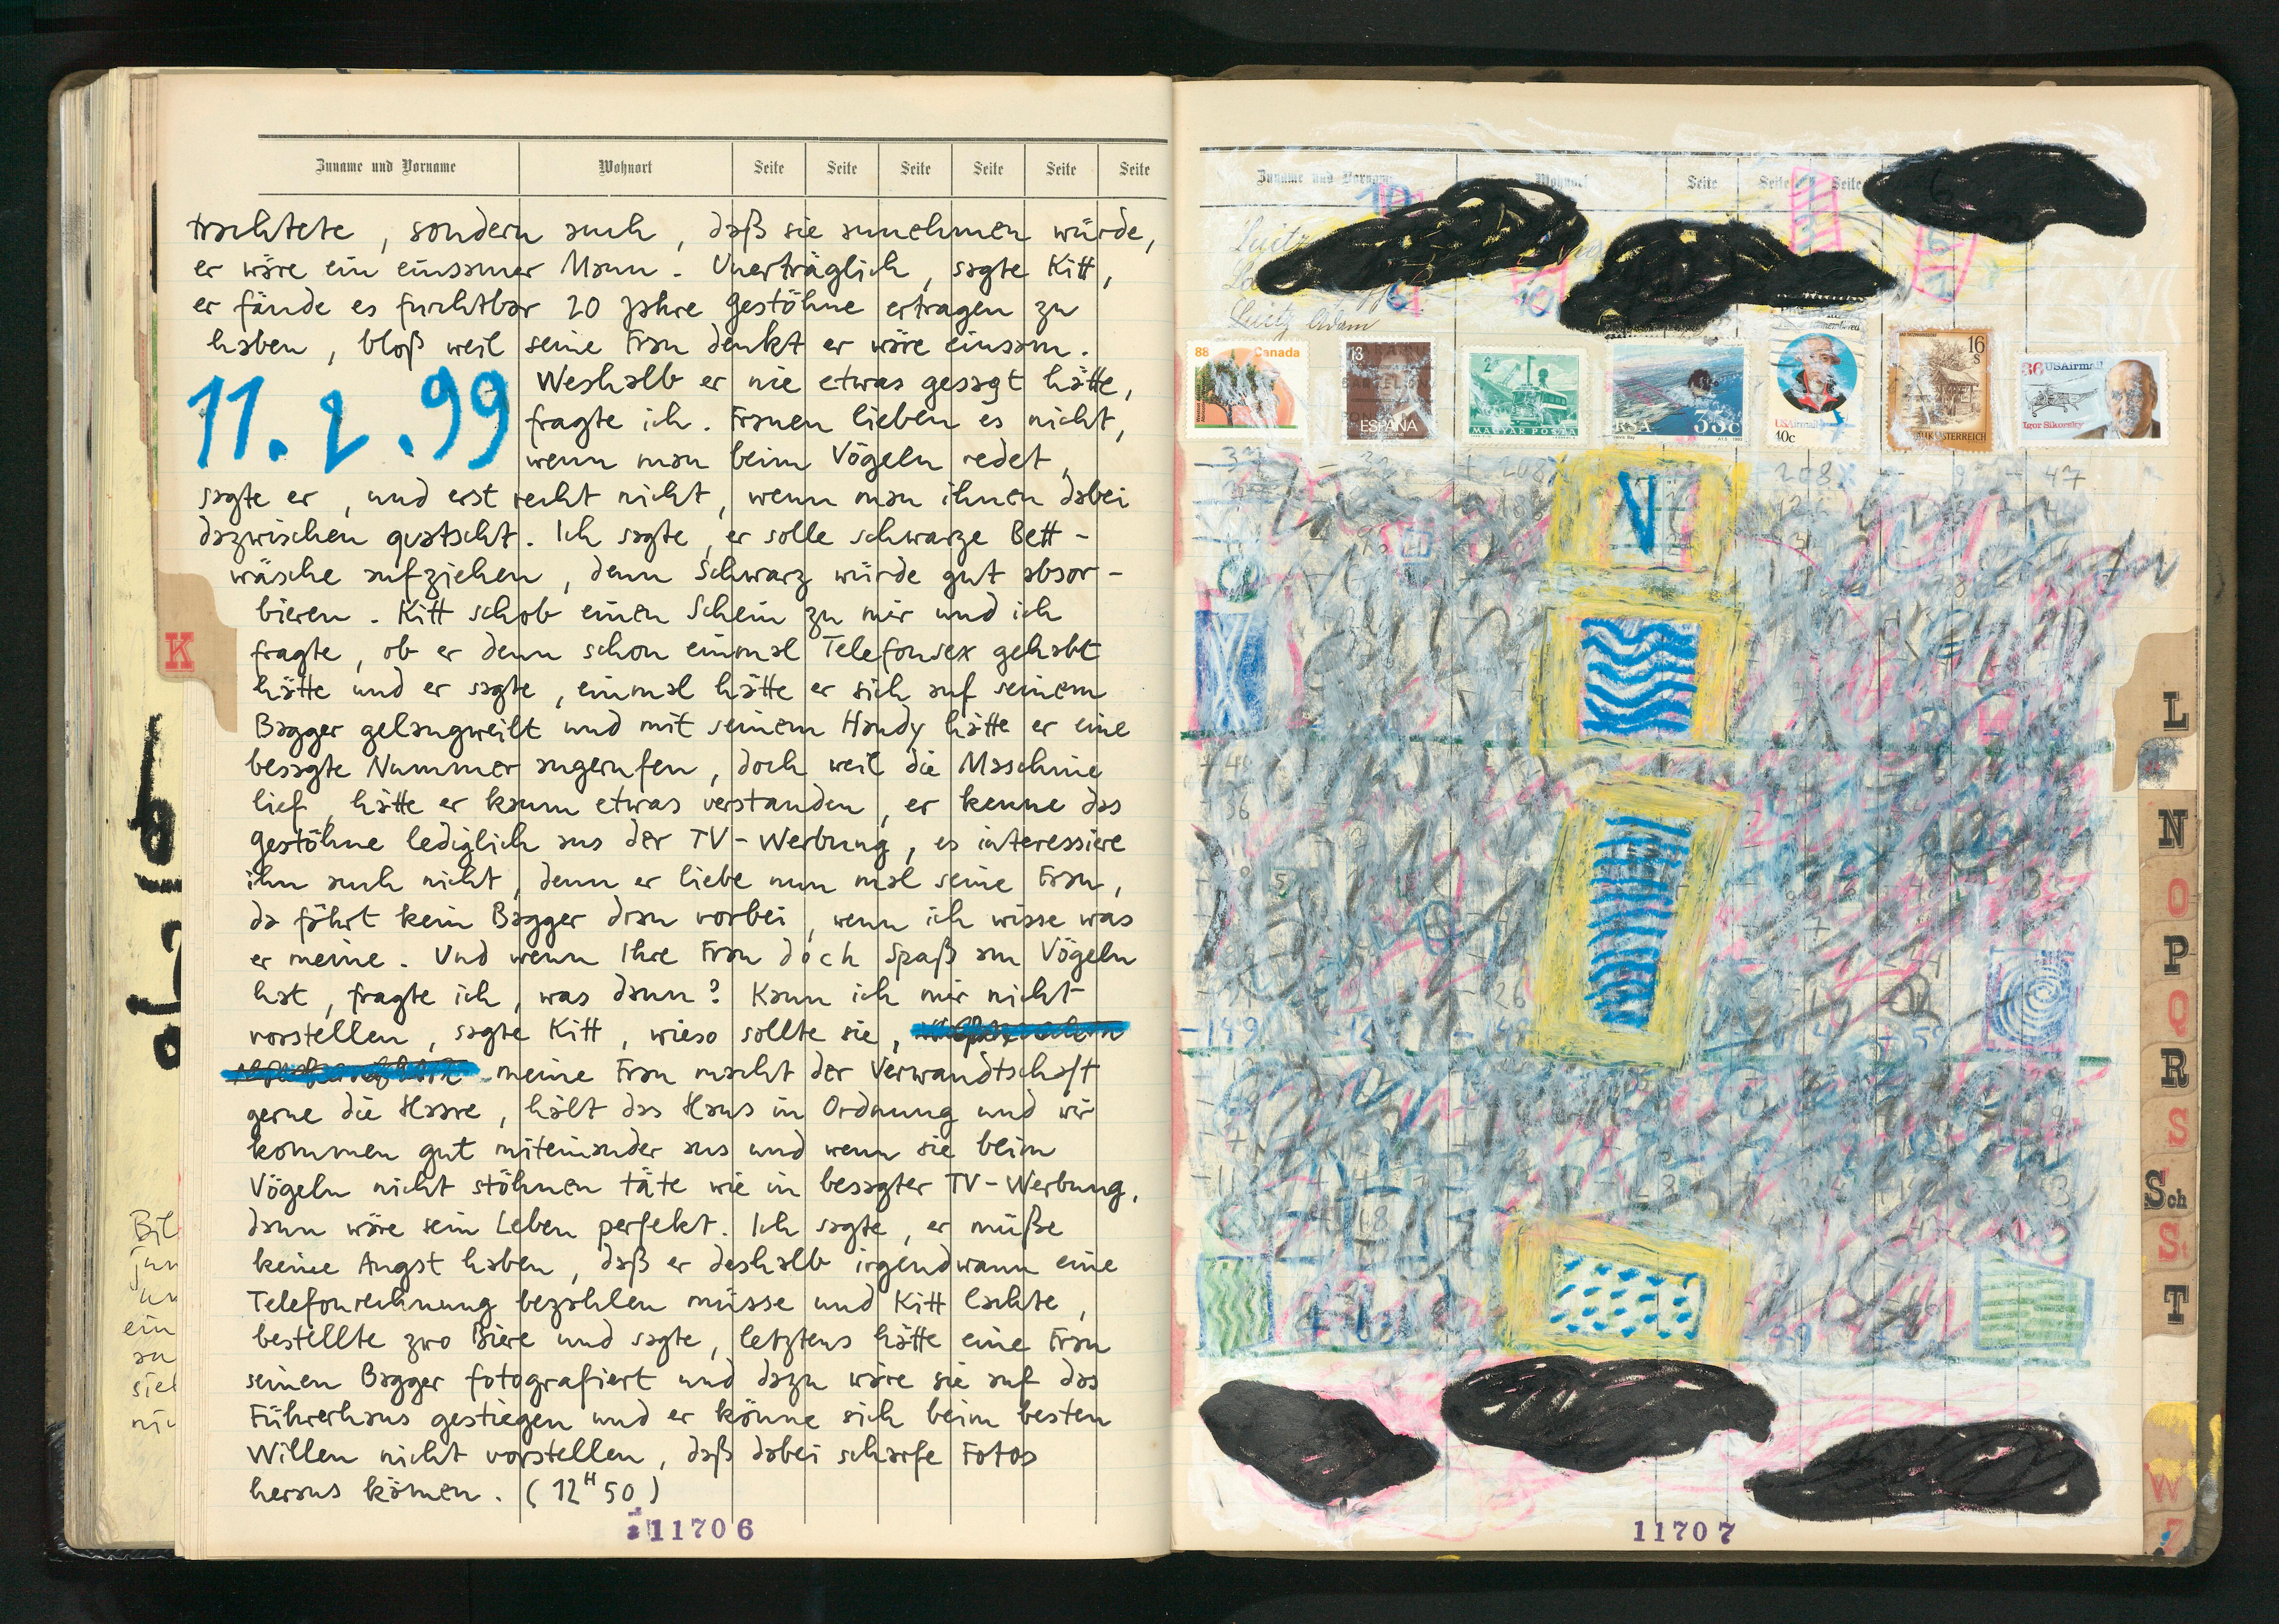 Zuname und Vorname Wohnort Seite Seite Seite Seite Seite Seite
trachtete, sondern auch, daß sie annehmen würde,
er wäre ein einsamer Mann. Unerträglich, sagte Kitt,
er fände es furchtbar 20 Jahre Gestöhne ertragen zu
haben, bloß weil seine Frau denkt er wäre einsam.
11.2.99
Weshalb er nie etwas gesagt hätte,
fragte ich. Frauen lieben es nicht,
wenn man beim Vögeln redet,
sagte er, und erst recht nicht, wenn man ihnen dabei
dazwischen quatscht. Ich sagte, er solle schwarze Bett-
wäsche aufziehen, denn Schwarz würde gut absor-
bieren. Kitt schob einen Schein zu mir und ich
fragte, ob er denn schon einmal Telefonsex gehabt
hätte und er sagte, einmal hätte er sich auf seinem
Bagger gelangweilt und mit seinem Handy hätte er eine
besagte Nummer angerufen, doch weil die Maschine
lief, hätte er kaum etwas verstanden, er kenne das
Gestöhne lediglich aus der TV-Werbung, es interessiere
ihn auch nicht, denn er liebe nun mal seine Frau,
da fährt kein Bagger dran vorbei, wenn ich wisse was
er meine. Und wenn Ihre Frau doch Spaß am Vögeln
hat, fragte ich, was dann? Kann ich mir nicht
vorstellen, sagte Kitt, wieso sollte sie,
meine Frau macht der Verwandtschaft
gerne die Haare, hält das Haus in Ordnung und wir
kommen gut miteinander aus und wenn sie beim
Vögeln nicht stöhnen täte wie in besagter TV-Werbung,
dann wäre sein Leben perfekt. Ich sagte, er müße
keine Angst haben, daß er deshalb irgendwann eine
Telefonrechnung bezahlen müsse und Kitt lachte,
bestellte zwo Biere und sagte, letztens hätte eine Frau
seinen Bagger fotografiert und dazu wäre sie auf das
Führerhaus gestiegen und er könne sich beim besten
Willen nicht vorstellen, daß dabei scharfe Fotos
heraus kämen. (12H50)
11706
K
Bil
ein
siel
Zuname und Vorname Wohnort Seite Seite Seite
Luitz
Luitz Adam
88 Canada
13
ESPAÑA
2
MAGYAR POSTA
RSA 35c
USAirmail
40c
16
S
REPUBLIK ÖSTERREICH
36 USAirmail
Igor Sikorsky
V
-149
11707
L
N
O
P
Q
R
S
Sch
St
T
W
Z